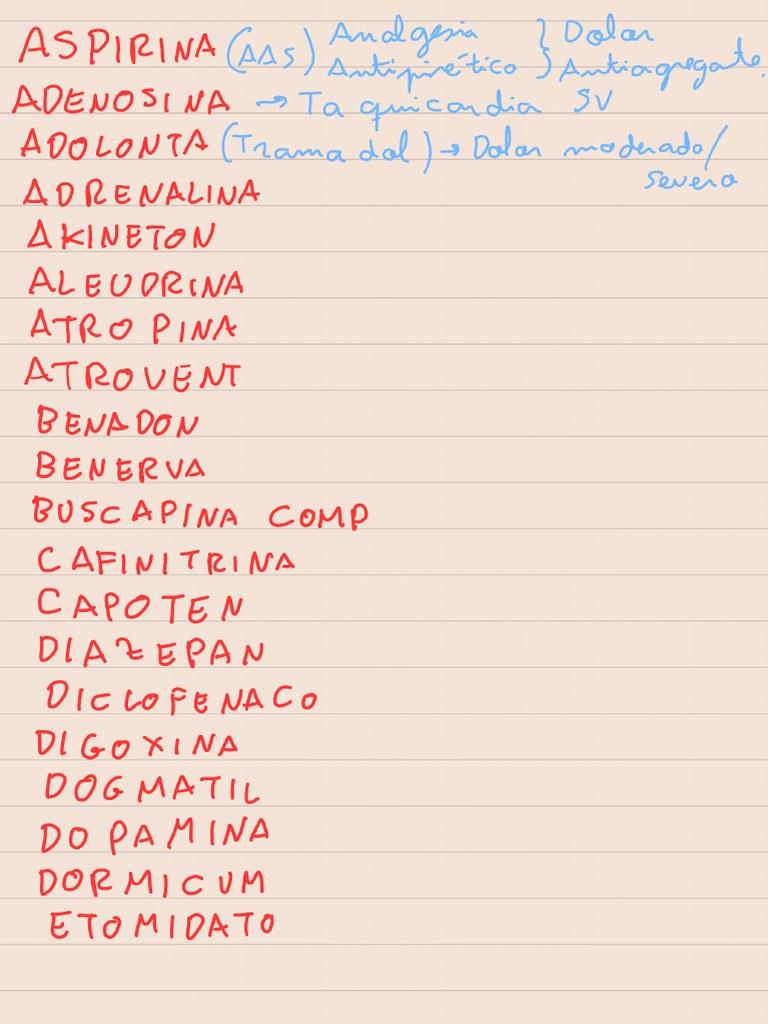 ASPIRINA (AAS) Analgesia } Dolor
Antipirético } Antiagregante.
ADENOSINA → Taquicardia SV
ADOLONTA (Tramadol) → Dolor moderado/
severo
ADRENALINA
AKINETON
ALEUDRINA
ATROPINA
ATROVENT
BENADON
BENERVA
BUSCAPINA COMP
CAFINITRINA
CAPOTEN
DIAZEPAN
DICLOFENACO
DIGOXINA
DOGMATIL
DOPAMINA
DORMICUM
ETOMIDATO